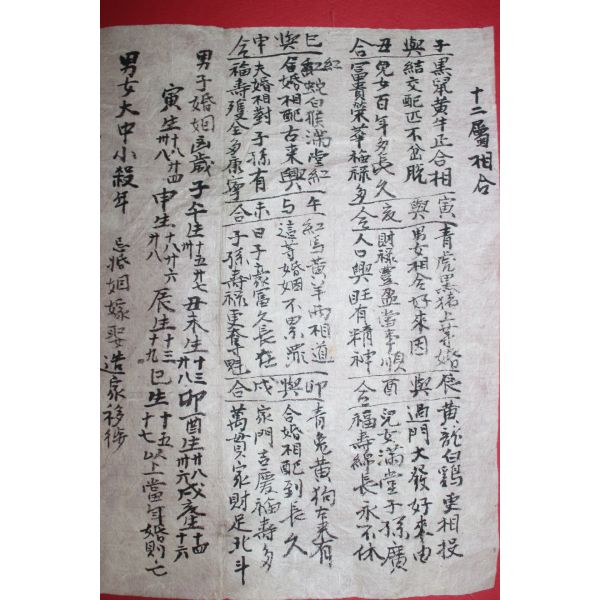 十二屬相合
子 黑鼠黃牛正合相 寅 青虎黑猪上等婚 辰 黃龍白鷄更相投
與 結交配匹不岔脫 與 男女相合好來因 與 過門大發好來由
丑 兒女百年多長久 亥 財祿豐盈當事順 酉 兒女滿堂子孫廣
合 富貴榮華福祿多 合 人口興旺有精神 合 福壽綿長永不休
巳 紅蛇白猴滿堂紅 午 紅馬黃羊兩相道 卯 青兔黃狗古來有
與 合婚相配古來興 与 這等婚姻不累罪 與 合婚相配到長久
申 夫婚相對子孫有 未 日子豪富久長在 戌 家門吉慶福壽多
合 福壽雙全多康寧 合 子孫壽祿更奪魁 合 萬貫家財足北斗
男子婚姻凶歲 子午生十五廿七卅 丑未生十三廿八 卯酉生廿八卅六 戌亥生十四十六
寅生十八廿四卅八 申生十八廿六卅八 辰生十三十九 巳生十五十七 以上當年婚則亡
男女大中小殺年 忌婚姻嫁娶造家移徙